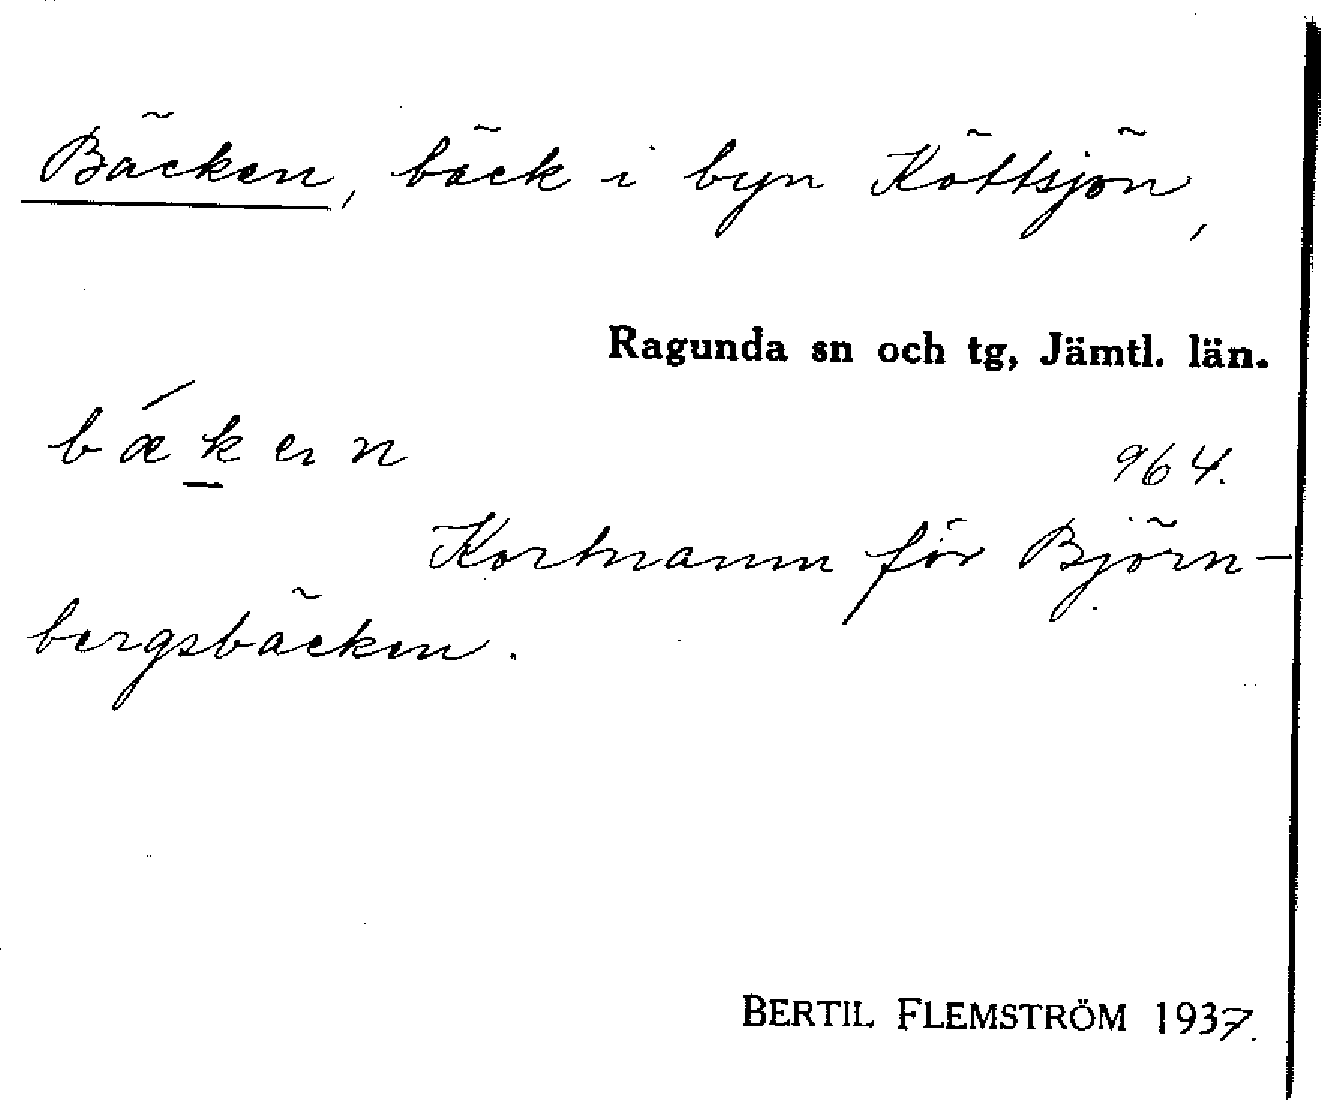 Bäcken, bäck i byn Köttsjön,
Ragunda sn och tg, Jämtl. län.
bǽk̲en
964.
Kortnamn för Björn-
bergsbäcken.
BERTIL FLEMSTRÖM 1937.